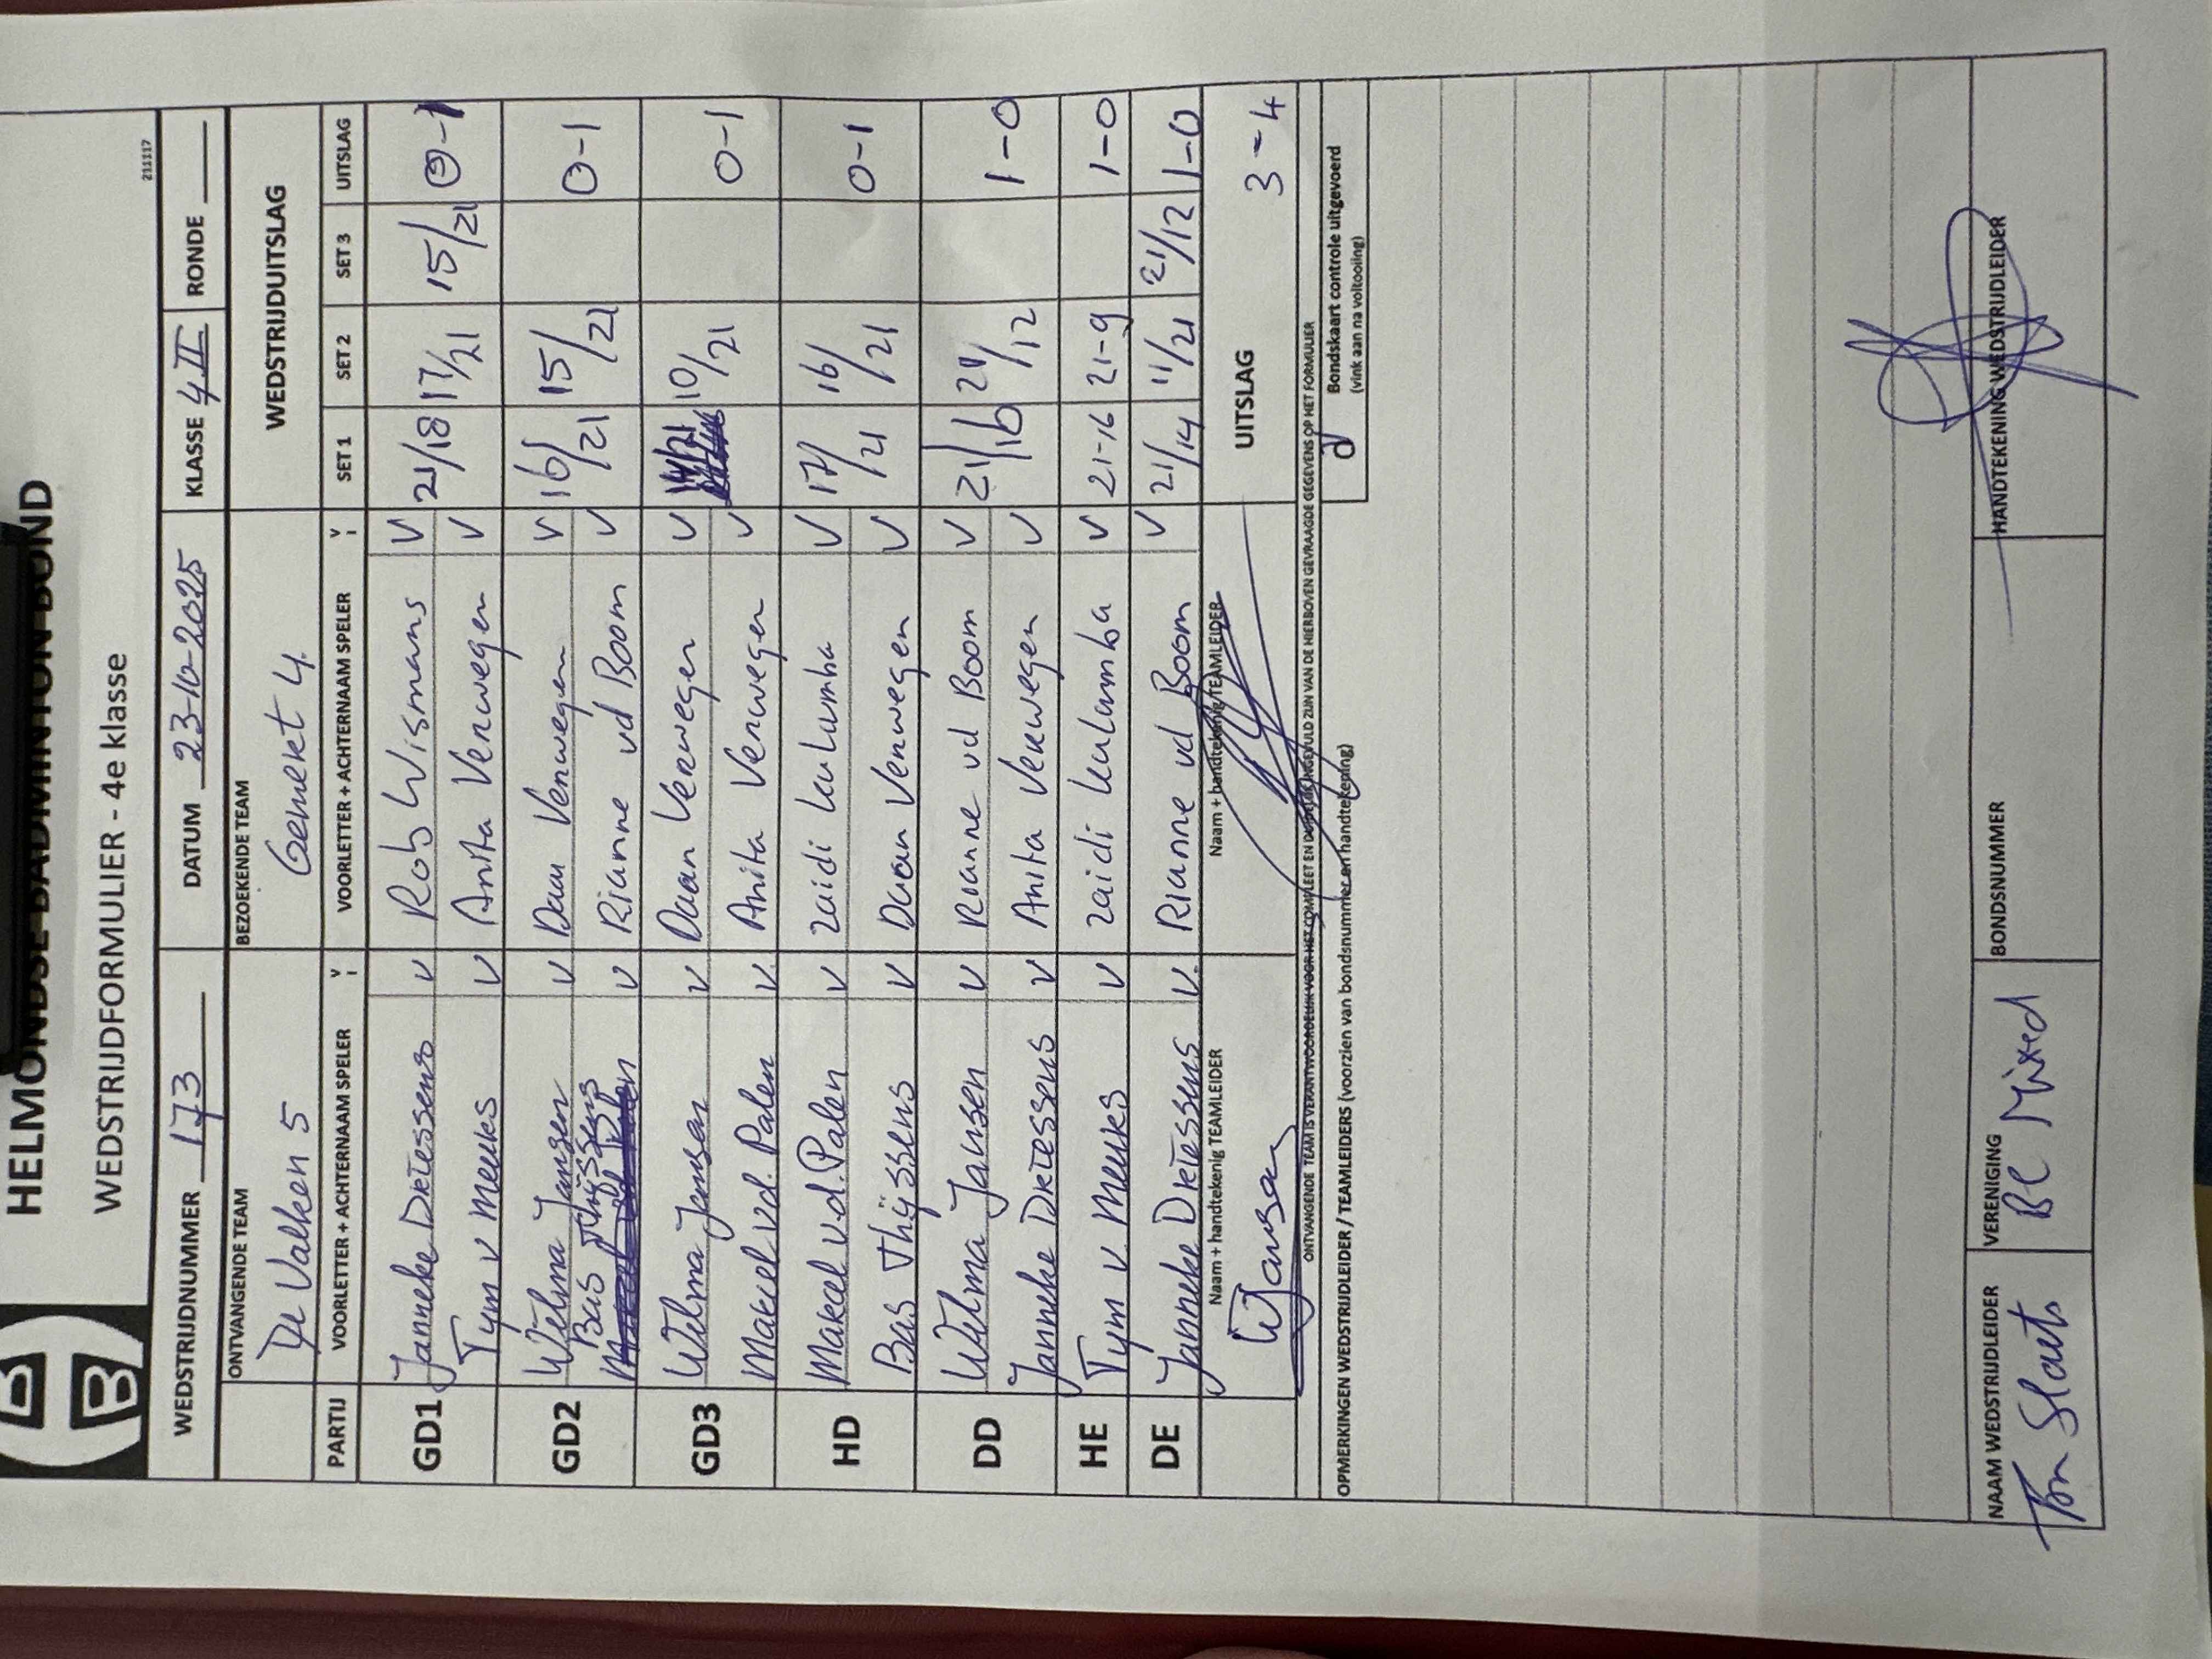 HELMONDSE BADMINTON BOND
WEDSTRIJDFORMULIER - 4e klasse
211117
WEDSTRIJDNUMMER 173 DATUM 23-10-2025 KLASSE 4 II RONDE
ONTVANGENDE TEAM BEZOEKENDE TEAM WEDSTRIJDUITSLAG
De Valken 5 Gemekt 4
PARTIJ VOORLETTER + ACHTERNAAM SPELER V VOORLETTER + ACHTERNAAM SPELER V SET 1 SET 2 SET 3 UITSLAG
GD1 Janneke Driessens V Rob Wismans V 21/18 17/21 15/21 0-1
Tym v Meuks V Anita Verwegen V
GD2 Welma Jansen V Daan Verwegen V 16/21 15/21 0-1
Bas Thijssens V Rianne vd Boom V
GD3 Welma Jansen V Daan Verwegen V 14/21 10/21 0-1
Makel v.d. Palen V. Anita Verwegen V
HD Makel v.d. Palen V Zaidi Leulumba V 17/21 16/21 0-1
Bas Thijssens V Daan Verwegen V
DD Welma Jansen V Rianne vd Boom V 21/16 21/12 1-0
Janneke Driessens V Anita Verwegen V
HE Tym v Meuks V Zaidi Leulumba V 21-16 21-9 1-0
DE Janneke Driessens V. Rianne vd Boom V 21/14 11/21 21/12 1-0
Naam + handtekenig TEAMLEIDER Naam + handtekenig TEAMLEIDER UITSLAG 3-4
WJansen
ONTVANGENDE TEAM IS VERANTWOORDELIJK VOOR HET COMPLEET EN DUIDELIJK INGEVULD ZIJN VAN DE HIERBOVEN GEVRAAGDE GEGEVENS OP HET FORMULIER
OPMERKINGEN WEDSTRIJDLEIDER / TEAMLEIDERS (voorzien van bondsnummer en handtekening)
Bondskaart controle uitgevoerd
(vink aan na voltooiing)
NAAM WEDSTRIJDLEIDER VERENIGING BONDSNUMMER HANDTEKENING WEDSTRIJDLEIDER
Ton Slaets BC Mixed